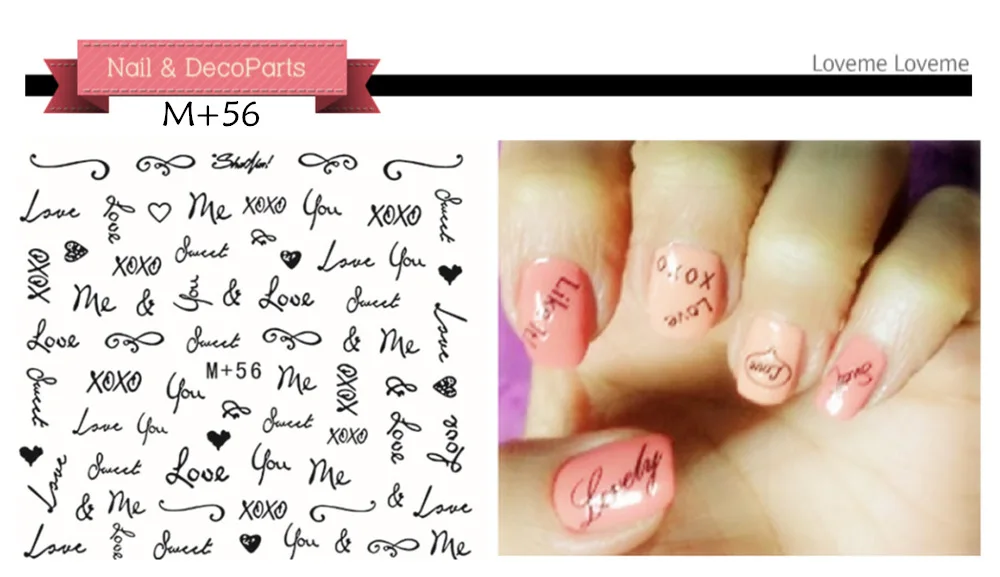 Nail & DecoParts
Loveme Loveme
M+56
Love Love Me XOXO You XOXO Sweet
XOXO XOXO Sweet & Love You
Me & You & Love Sweet
Love Sweet & Me Love
Sweet XOXO You M+56 Me XOXO & Love
Love You & Sweet XOXO Love
Love Sweet Love You Me
& Me XOXO & Love
Love Love Sweet You & Me
Like it
XOXO
Love
Love
Lovely